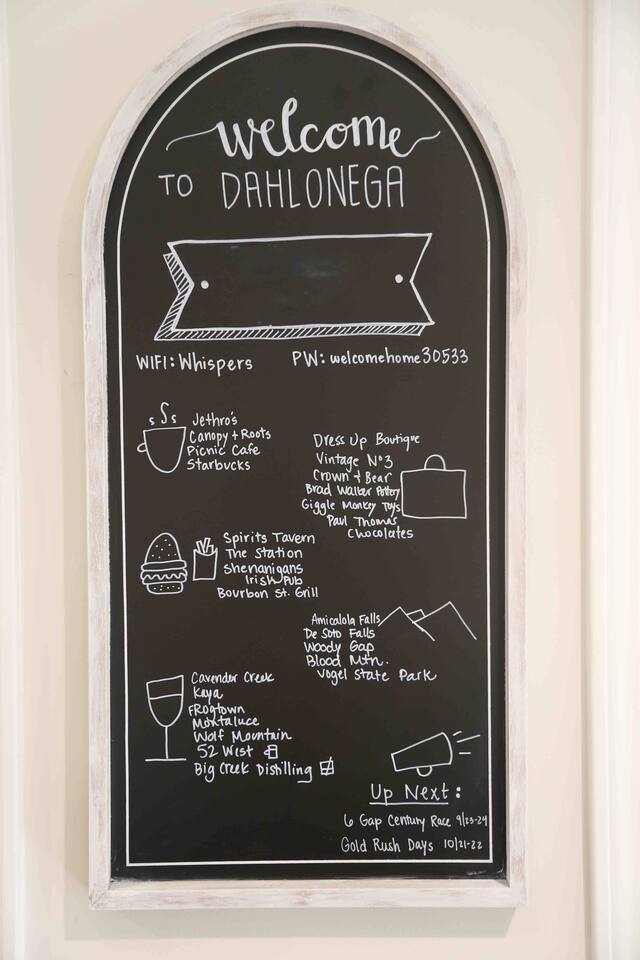 welcome
TO DAHLONEGA
WIFI: Whispers PW: welcomehome30533
Jethro's
Canopy + Roots
Picnic Cafe
Starbucks
Dress Up Boutique
Vintage Nº3
Crown & Bear
Brad Walker Pottery
Giggle Monkey Toys
Paul Thomas
Chocolates
Spirits Tavern
The Station
Shenanigans
Irish Pub
Bourbon St. Grill
Amicalola Falls
De Soto Falls
Woody Gap
Blood Mtn.
Vogel State Park
Cavender Creek
Kaya
FRogtown
Montaluce
Wolf Mountain
52 West
Big Creek Distilling
Up Next:
6 Gap Century Race 9/23-24
Gold Rush Days 10/21-22